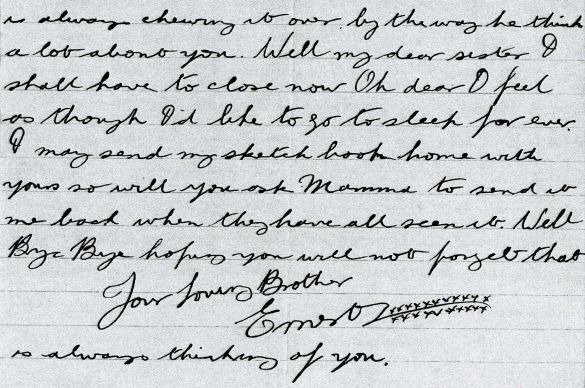 is always chewing it over. by the way he think
a lot about you. Well my dear sister I
shall have to close now Oh dear I feel
as though I'd like to go to sleep for ever.
I may send my sketch book home with
yours so will you ask Mamma to send it
me back when they have all seen it. Well
Bye Bye hoping you will not forget that
Your Loving Brother
Ernest xxxxxxxxxx
xxxxxxxxxx
is always thinking of you.